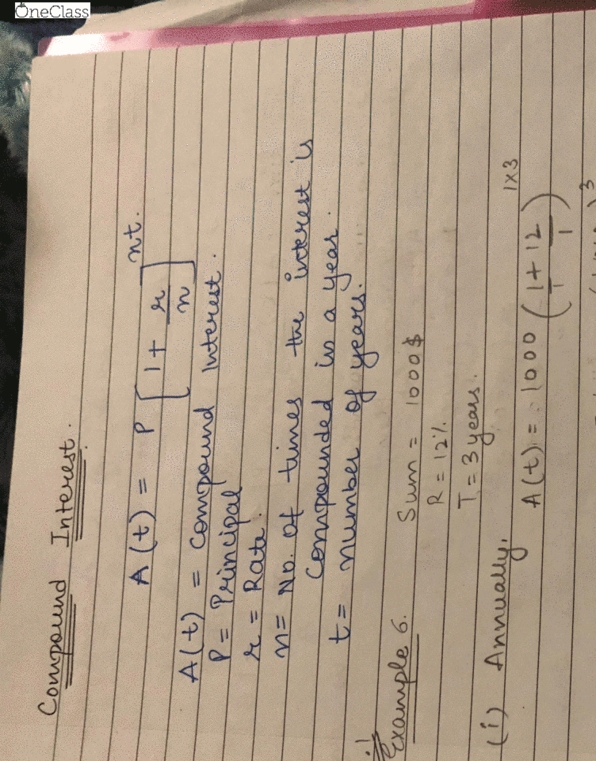 OneClass
Compound Interest.
A(t) = P [1 + r/n]^nt.
A(t) = Compound Interest.
P = Principal
r = Rate.
n = No. of times the interest is
compounded in a year.
t = number of years.
Example 6. Sum = 1000$
R = 12%
T = 3 years.
(i) Annually,
A(t) = 1000 (1/1 + 12/1)^1x3
3